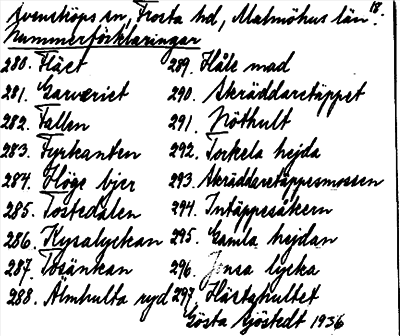 18.
Svensköps sn, Frosta hd, Malmöhus län.
Nummerförklaringar
280. Flået
281. Garveriet
282. Fallen
283. Fyrkanten
284. Höge bjer
285. Tostedalen
286. Kysalyckan
287. Tosänkan
288. Älmhulta ryd
289. Håle mad
290. Skräddaretäppet
291. Nöthult
292. Torkela hejda
293. Skräddaretäppesmossen
294. Intäppesåkern
295. Gamla hejdan
296. Jensa lycka
297. Hästahultet
Gösta Sjöstedt 1936